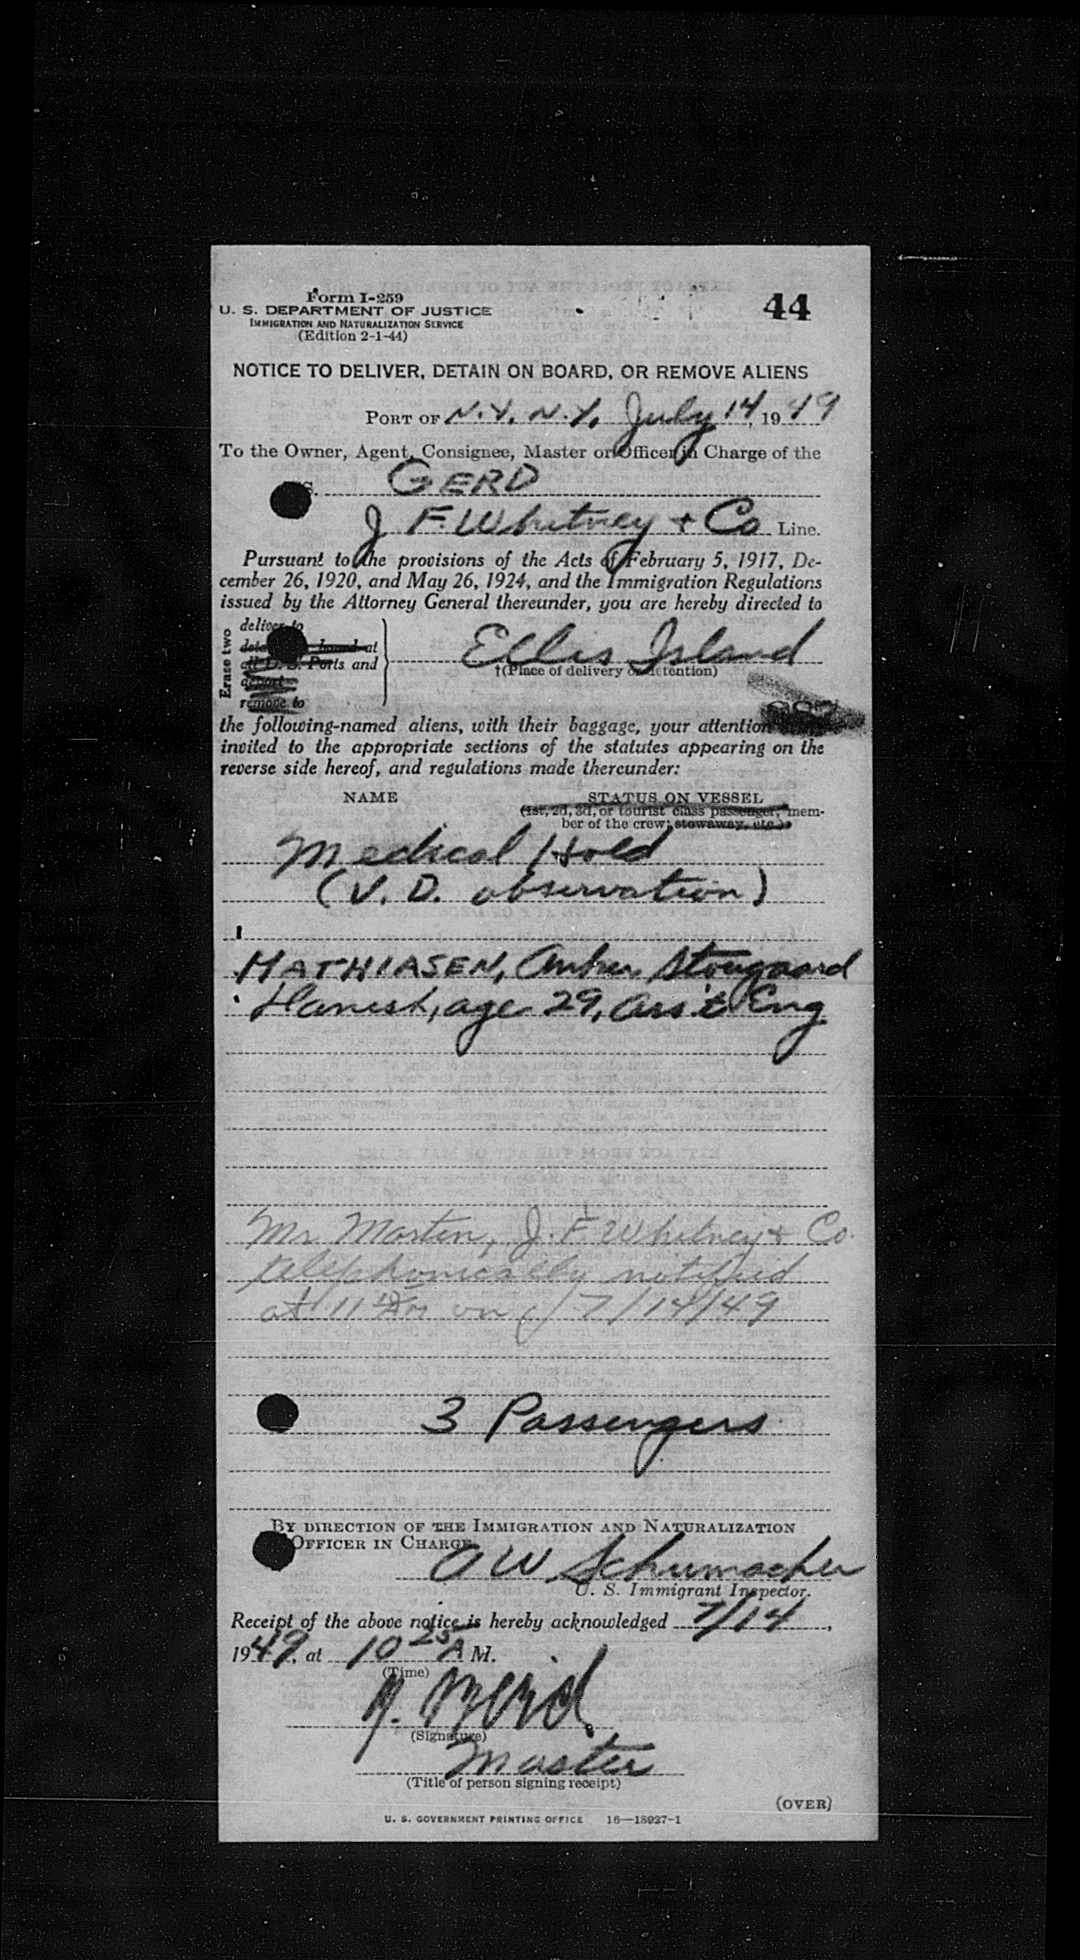 Form I-259
44
U. S. DEPARTMENT OF JUSTICE
IMMIGRATION AND NATURALIZATION SERVICE
(Edition 2-1-44)
NOTICE TO DELIVER, DETAIN ON BOARD, OR REMOVE ALIENS
PORT OF N.Y. N.Y. July 14, 1949
To the Owner, Agent, Consignee, Master or Officer in Charge of the
S. GERD
J F. Whitney + Co Line.
Pursuant to the provisions of the Acts of February 5, 1917, De-
cember 26, 1920, and May 26, 1924, and the Immigration Regulations
issued by the Attorney General thereunder, you are hereby directed to
Erase two
deliver to
board at
all U. S. Ports and
deport
remove to
Ellis Island
†(Place of delivery or detention)
the following-named aliens, with their baggage, your attention
invited to the appropriate sections of the statutes appearing on the
reverse side hereof, and regulations made thereunder:
NAME STATUS ON VESSEL
(1st, 2d, 3d, or tourist class passenger, mem-
ber of the crew; stowaway, etc.)
Medical Hold
(V. D. observation)
MATHIASEN, Stougaard
Danish, age 29, Ass't Eng
Mr. Martin, J. F Whitney + Co.
telephonically notified
at 11 AM on 7/14/49
3 Passengers
BY DIRECTION OF THE IMMIGRATION AND NATURALIZATION
OFFICER IN CHARGE
O W Schumacher
U. S. Immigrant Inspector.
Receipt of the above notice is hereby acknowledged 7/14,
1949, at 10 25 A M.
(Time)
(Signature)
Master
(Title of person signing receipt)
(OVER)
U. S. GOVERNMENT PRINTING OFFICE 16—18927-1